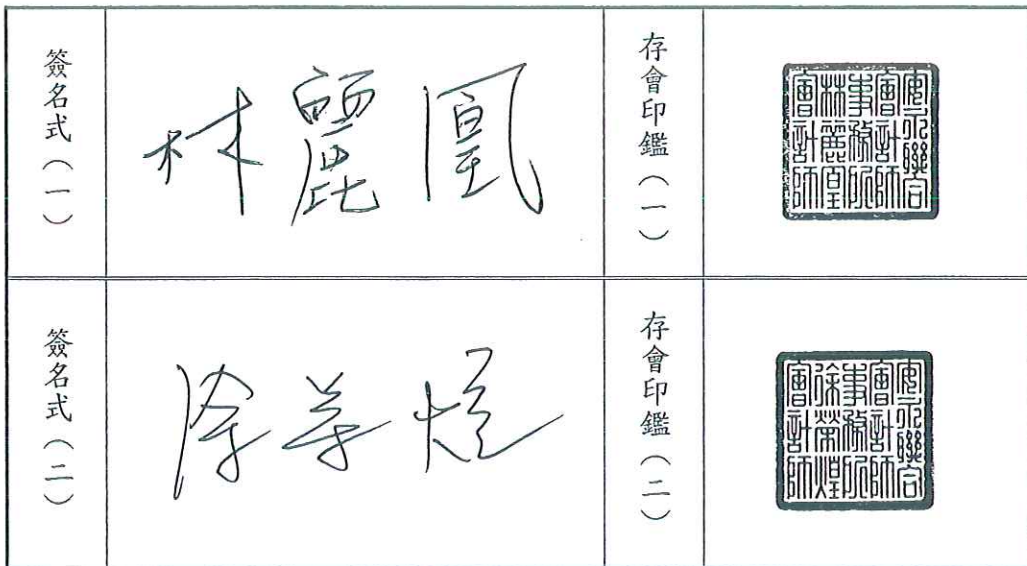 簽名式(一)
林麗凰
存會印鑑(一)
安永聯合
會計師
事務所
林麗凰
會計師
簽名式(二)
徐榮煌
存會印鑑(二)
安永聯合
會計師
事務所
徐榮煌
會計師